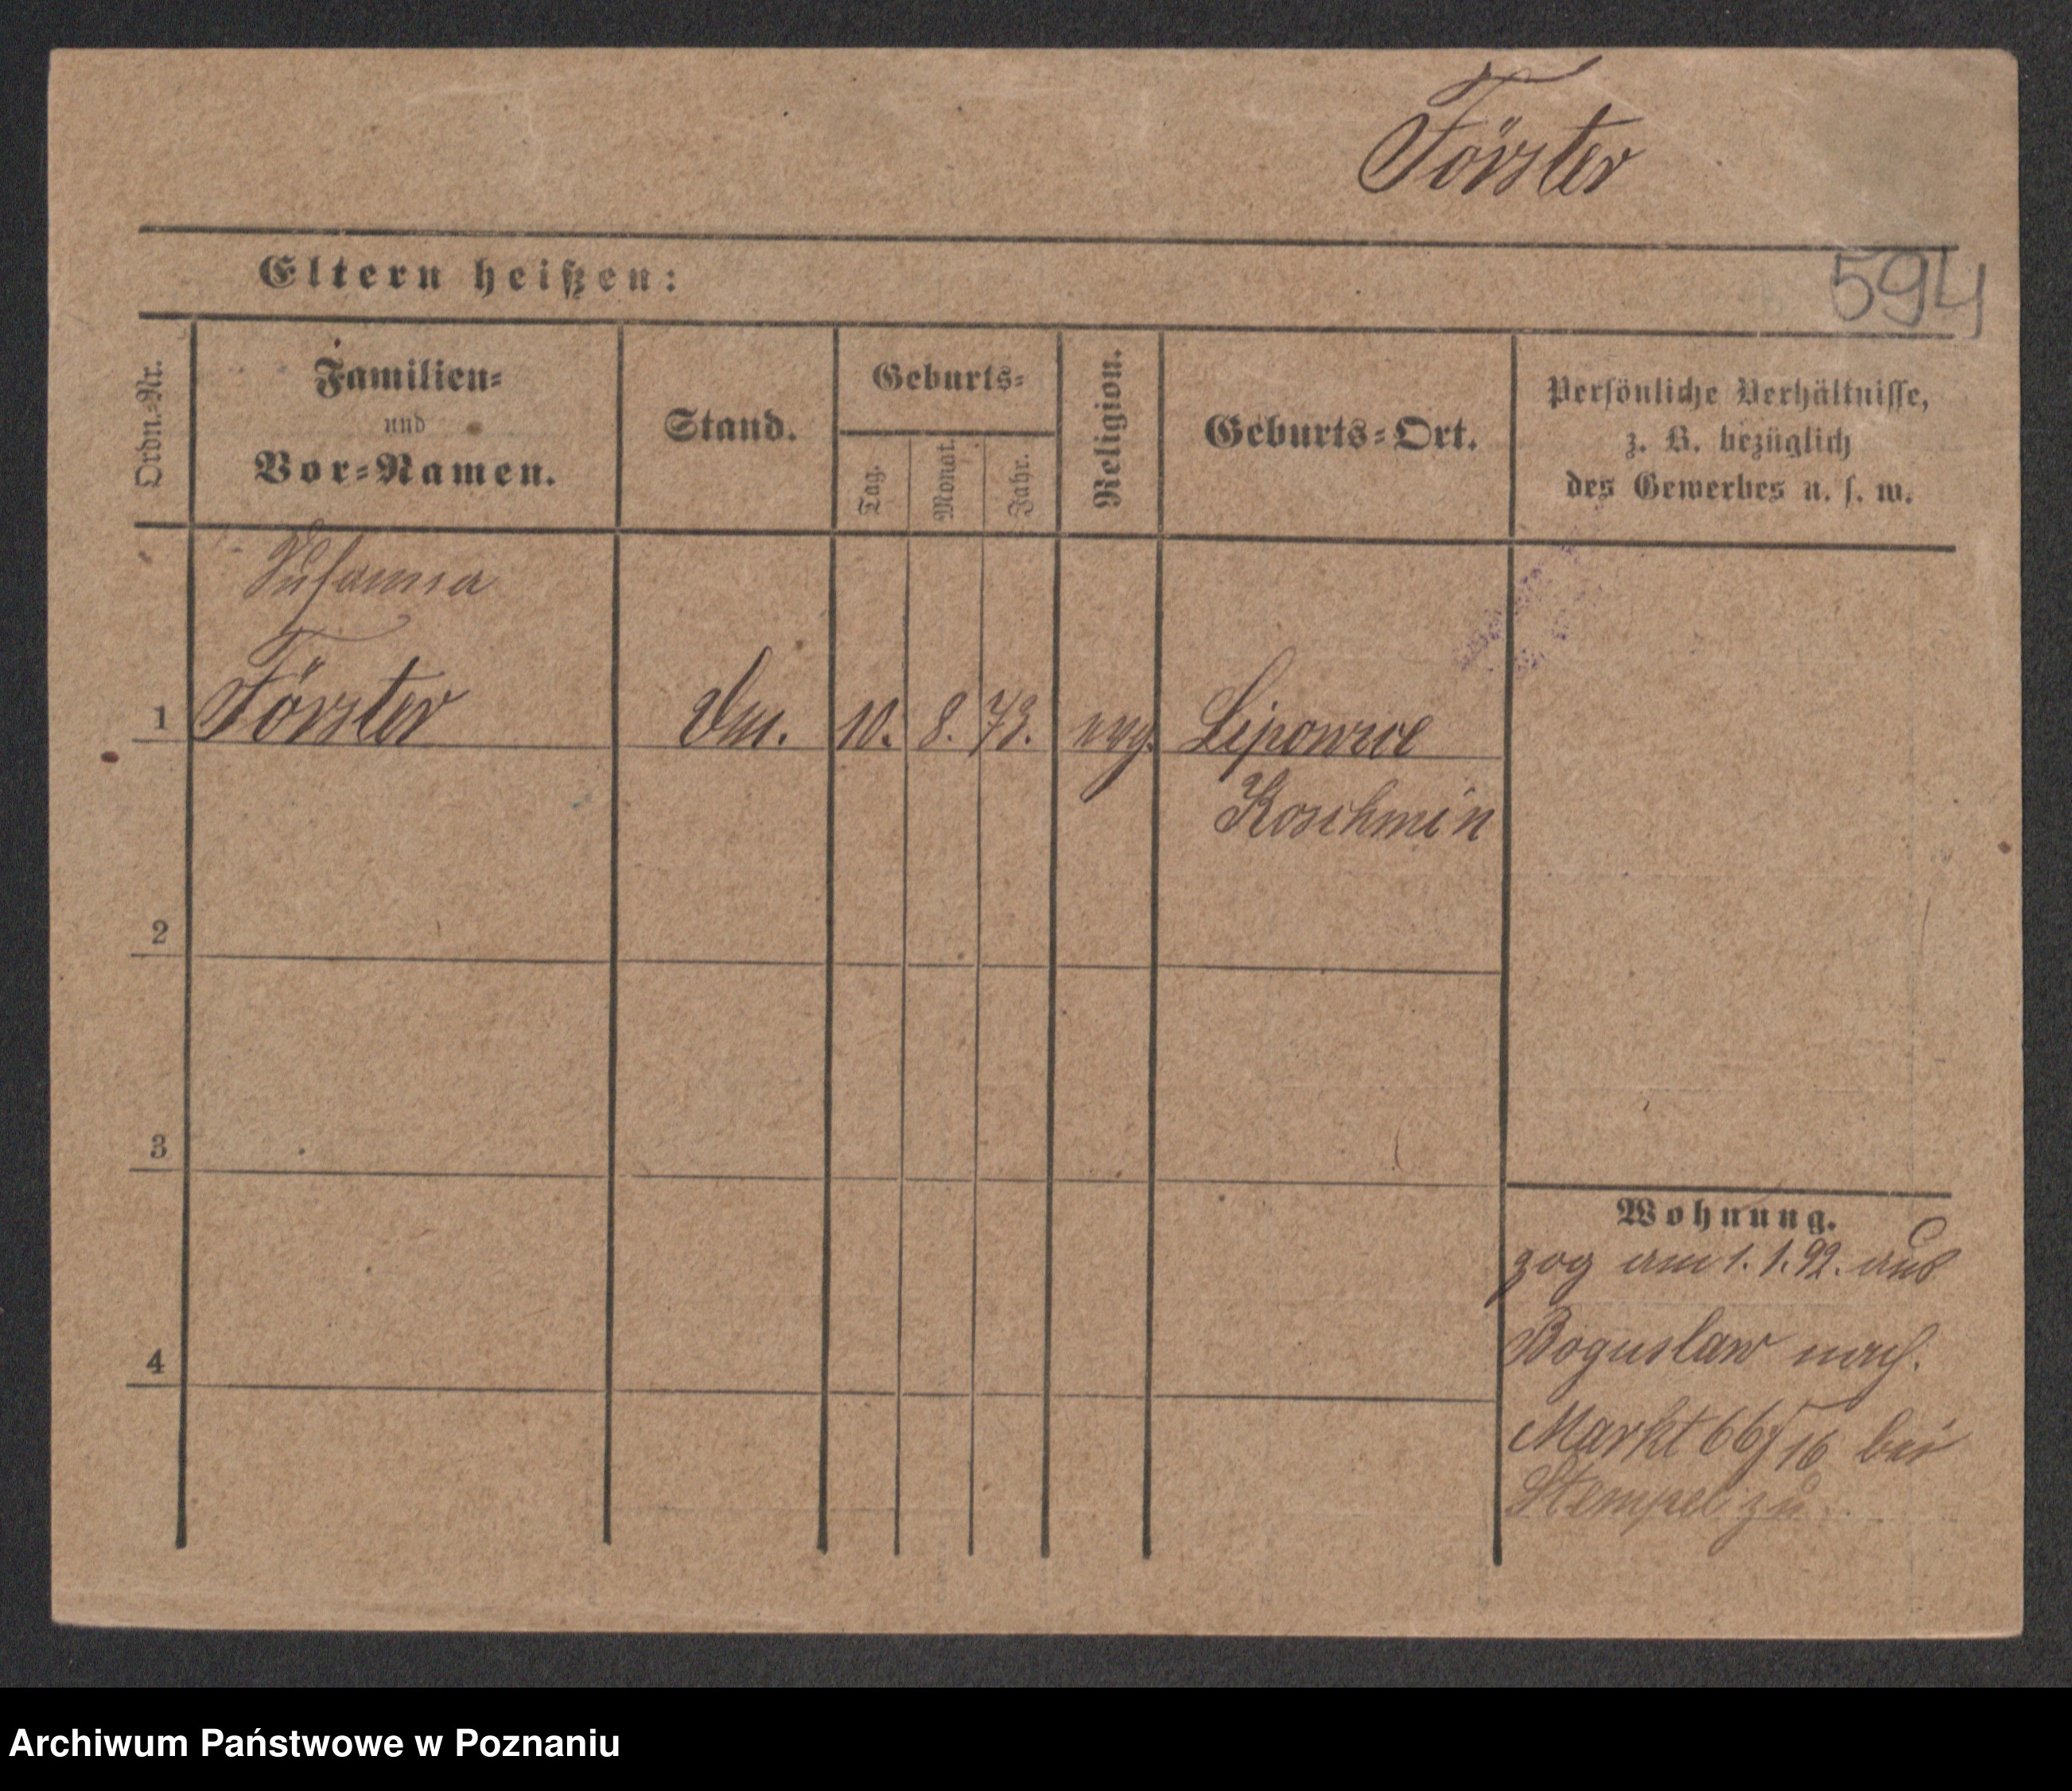 Förster
594
Eltern heißen:
Ordn.-Nr.
Familien-
und
Vor-Namen.
Stand.
Geburts-
Tag.
Monat.
Jahr.
Religion.
Geburts-Ort.
Persönliche Verhältnisse,
z. B. bezüglich
des Gewerbes u. s. w.
Susanna
1 Förster 10. 8. 73. evg. Lipowice
Koschmin
2
3
4
Wohnung.
zog am 1. 1. 92. aus
Boguslaw nach.
Markt 66/16 bei
Stempel zu.
Archiwum Państwowe w Poznaniu